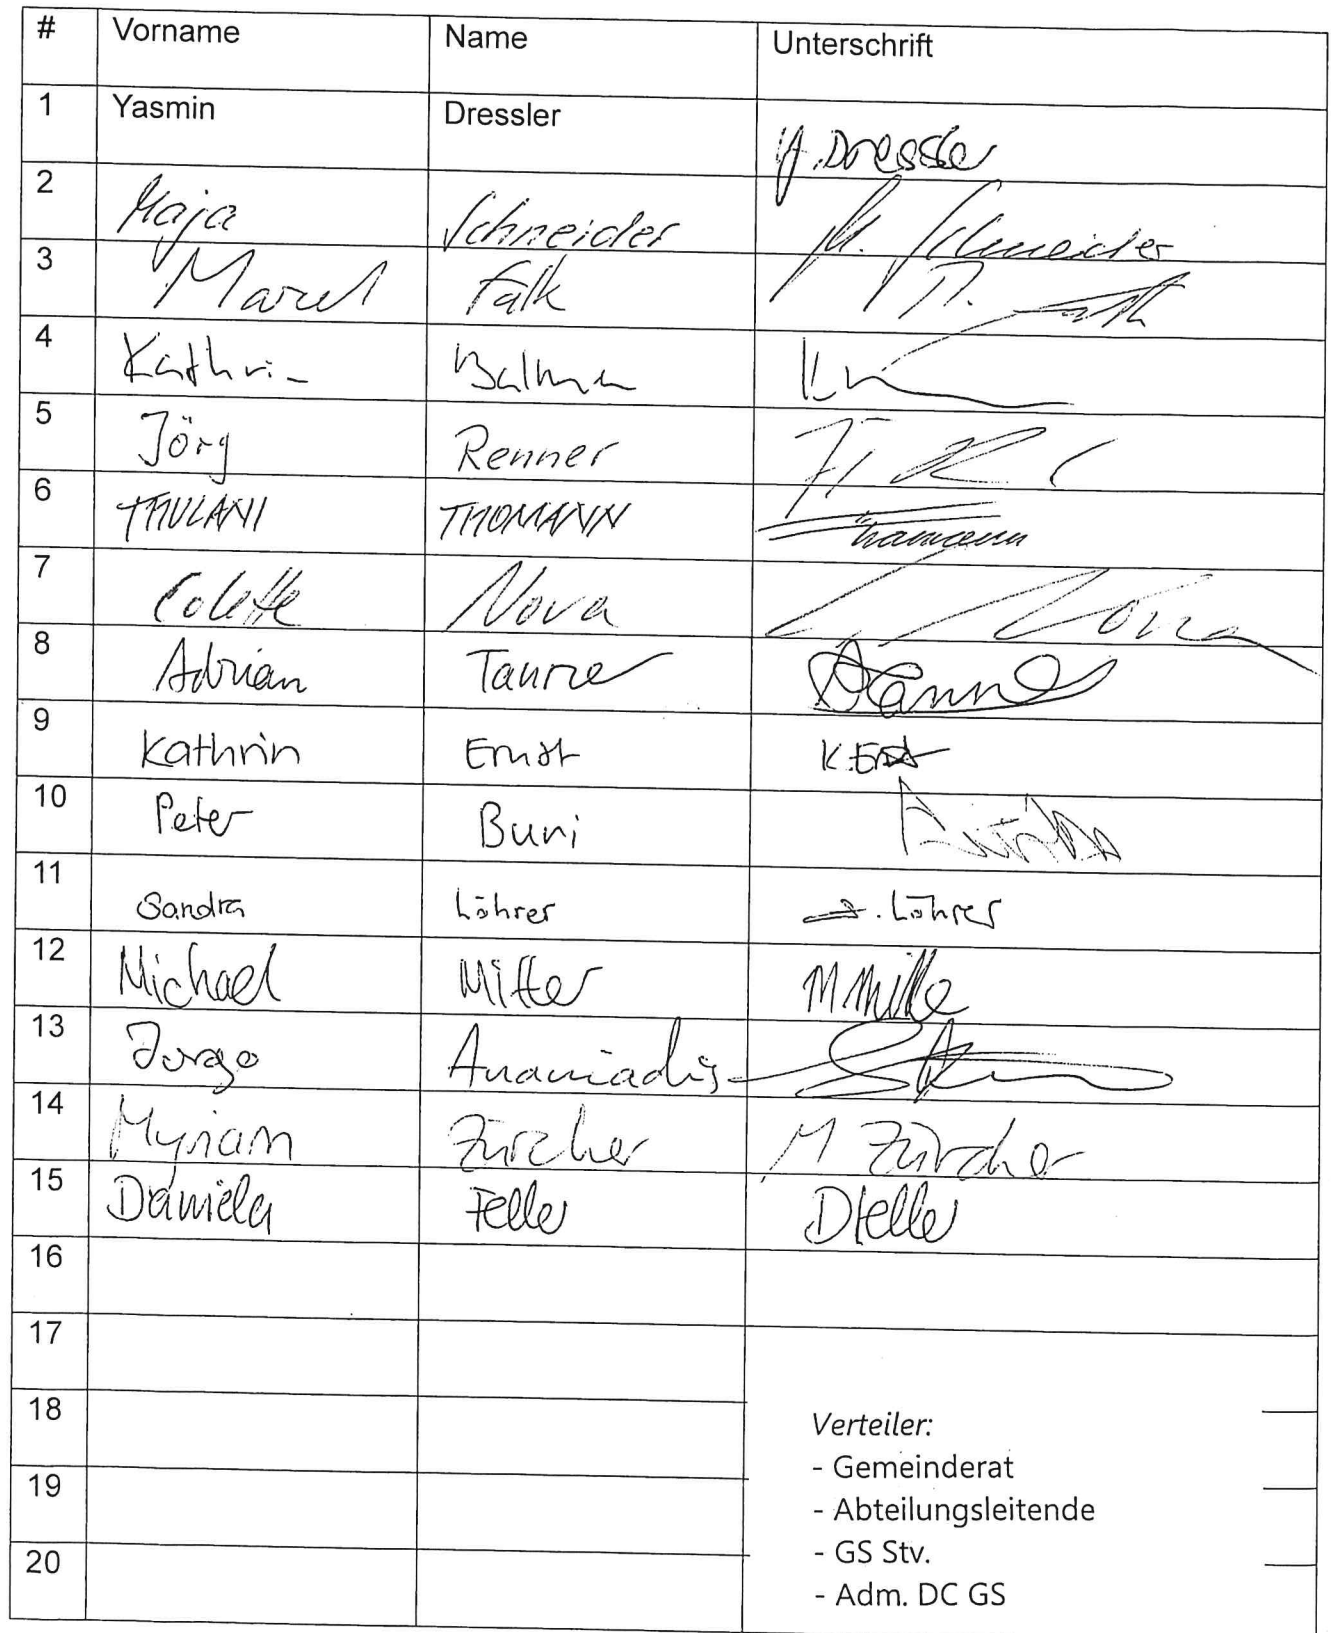 # Vorname Name Unterschrift
1 Yasmin Dressler Y. Dressler
2 Maja Schneider M. Schneider
3 Marcel Falk M. Falk
4 Kathrin
5 Jörg Renner
6 THULANI THOMANN Thomann
7 Colette Nova C. Nova
8 Adrian Tanner ATanner
9 Kathrin Ernst K. Ernst
10 Peter Buri
11 Sandra Löhrer S. Löhrer
12 Michael Mitter
13 Jorgo Ananiadis
14 Myriam Zürcher M Zürcher
15 Daniela Feller DFeller
16
17
18
Verteiler:
- Gemeinderat
19
- Abteilungsleitende
- GS Stv.
20
- Adm. DC GS